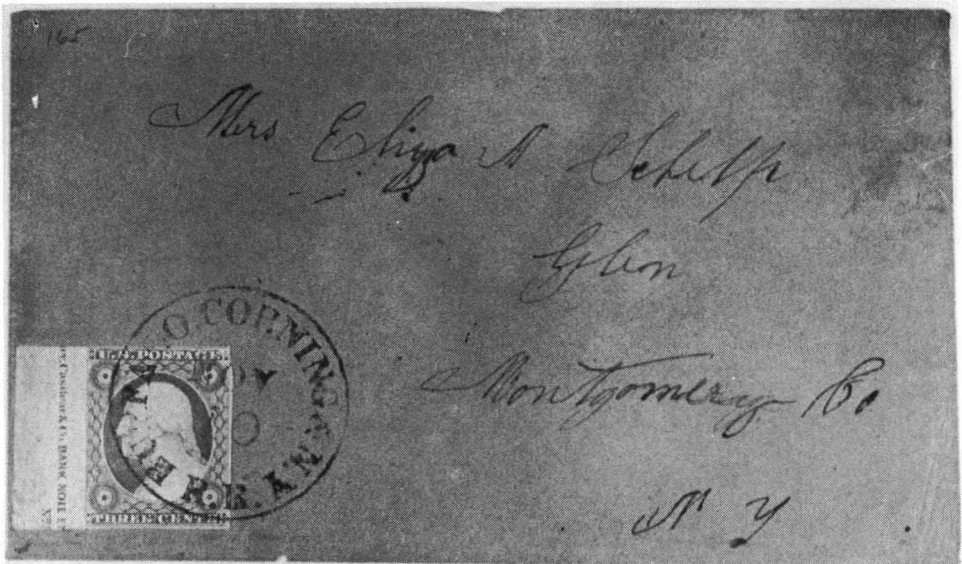 165
Mrs Eliza A
Glen
Montgomery Co
N Y
BUFFALO CORNING & N.Y. R.R.
U.S. POSTAGE
THREE CENTS
Casilear & Co. BANK NOTE